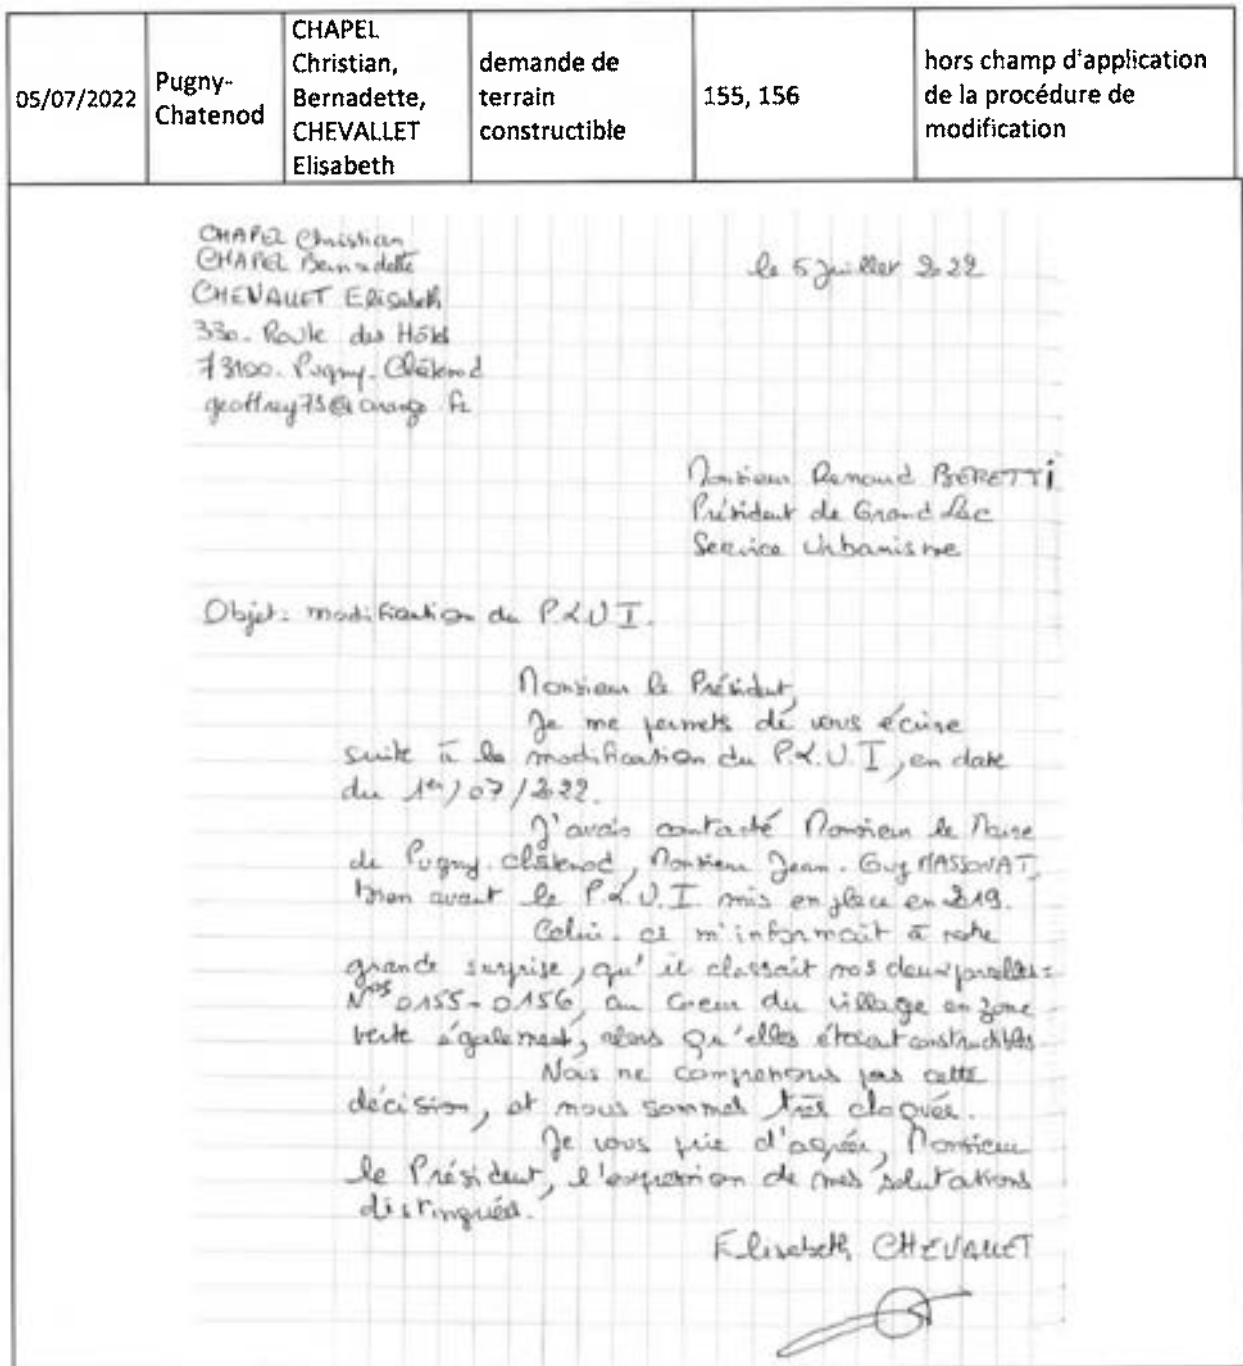 05/07/2022
Pugny-
Chatenod
CHAPEL
Christian,
Bernadette,
CHEVALLET
Elisabeth
demande de
terrain
constructible
155, 156
hors champ d'application
de la procédure de
modification
CHAPEL Christian
CHAPEL Bernadette
CHEVALLET Elisabeth
le 5 juillet 2022
330. Route des Hôtels
73100. Pugny. Châtenod
geoffrey73@orange.fr
Monsieur Renaud BERETTI
Président de Grand Lac
Service Urbanisme
Objet: modification du P.L.U.I.
Monsieur le Président,
Je me permets de vous écrire
suite à la modification du P.L.U.I, en date
du 1er/07/2022.
J'avais contacté Monsieur le Maire
de Pugny. Châtenod, Monsieur Jean. Guy MASSONAT,
bien avant le P.L.U.I. mis en place en 2019.
Celui. ci m'informait à notre
grande surprise, qu'il classait nos deux parcelles:
Nos 0155-0156, au Coeur du village en zone
verte également, alors qu'elles étaient constructibles
Nous ne comprenons pas cette
décision, et nous sommes très choqués.
Je vous prie d'agréer, Monsieur
le Président, l'expression de mes salutations
distinguées.
Elisabeth CHEVALLET